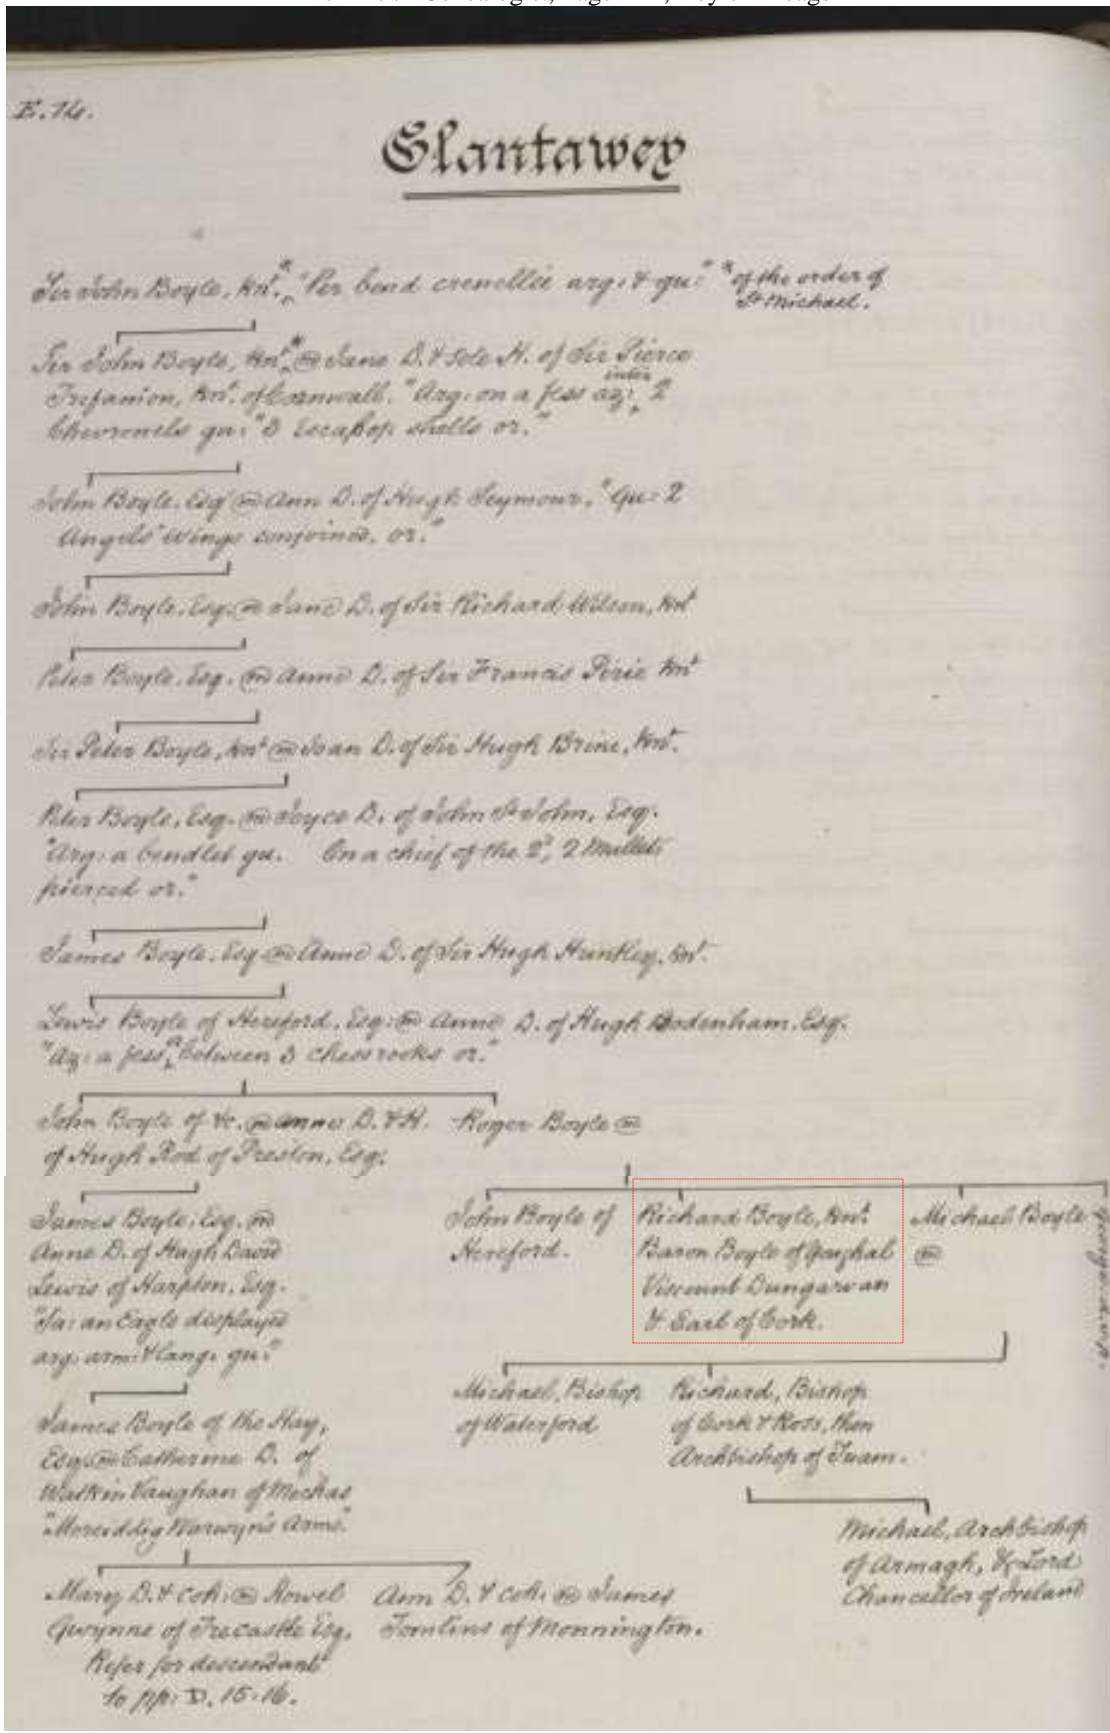 E. 14.
Glantawey
Sir John Boyle, Knt.* "Per bend crenellée arg: & gu:" * of the order of
St Michael.
Sir John Boyle, Knt.* m Jane D. & sole H. of Sir Pierce
Trefanion, Knt. of Cornwall. "Arg: on a fess az: inter 2
Chevronels gu: 3 Escallop shells or."
John Boyle, Esq m Ann D. of Hugh Seymour. "Gu: 2
Angels' Wings conjoined, or."
John Boyle, Esq. m Jane D. of Sir Richard Wilson, Knt
Peter Boyle, Esq. m Anne D. of Sir Francis Pirie Knt
Sir Peter Boyle, Knt m Joan D. of Sir Hugh Brine, Knt.
Peter Boyle, Esq. m Joyce D. of John St John, Esq.
"Arg: a bendlet gu. On a chief of the 2d, 2 Mullets
pierced or."
James Boyle, Esq m Anne D. of Sir Hugh Huntley, Knt.
Lewis Boyle of Hereford, Esq: m Anne D. of Hugh Bodenham, Esq.
"Az: a fess between 3 chessrooks or."
John Boyle of &c. m Anne D. & H.
of Hugh Rod of Preston, Esq:
Roger Boyle m
James Boyle, Esq. m
Anne D. of Hugh David
Lewis of Harpton, Esq.
"Sa: an Eagle displayed
arg: arm: & lang: gu:"
John Boyle of
Hereford.
Richard Boyle, Knt.
Baron Boyle of Youghal
Viscount Dungarvan
& Earl of Cork.
Michael Boyle
m
Michael, Bishop
of Waterford
Richard, Bishop
of Cork & Ross, then
Archbishop of Tuam.
James Boyle of the Hay,
Esq. m Catherine D. of
Watkin Vaughan of Mochas
"Moreiddig Warwyn's Arms."
Michael, Archbishop
of Armagh, & Lord
Chancellor of Ireland
Mary D. & coh: m Howel
Gwynne of Trecastle Esq,
Refer for descendant
to pp: D. 15-16.
Ann D. & coh: m James
Tomlins of Monnington.